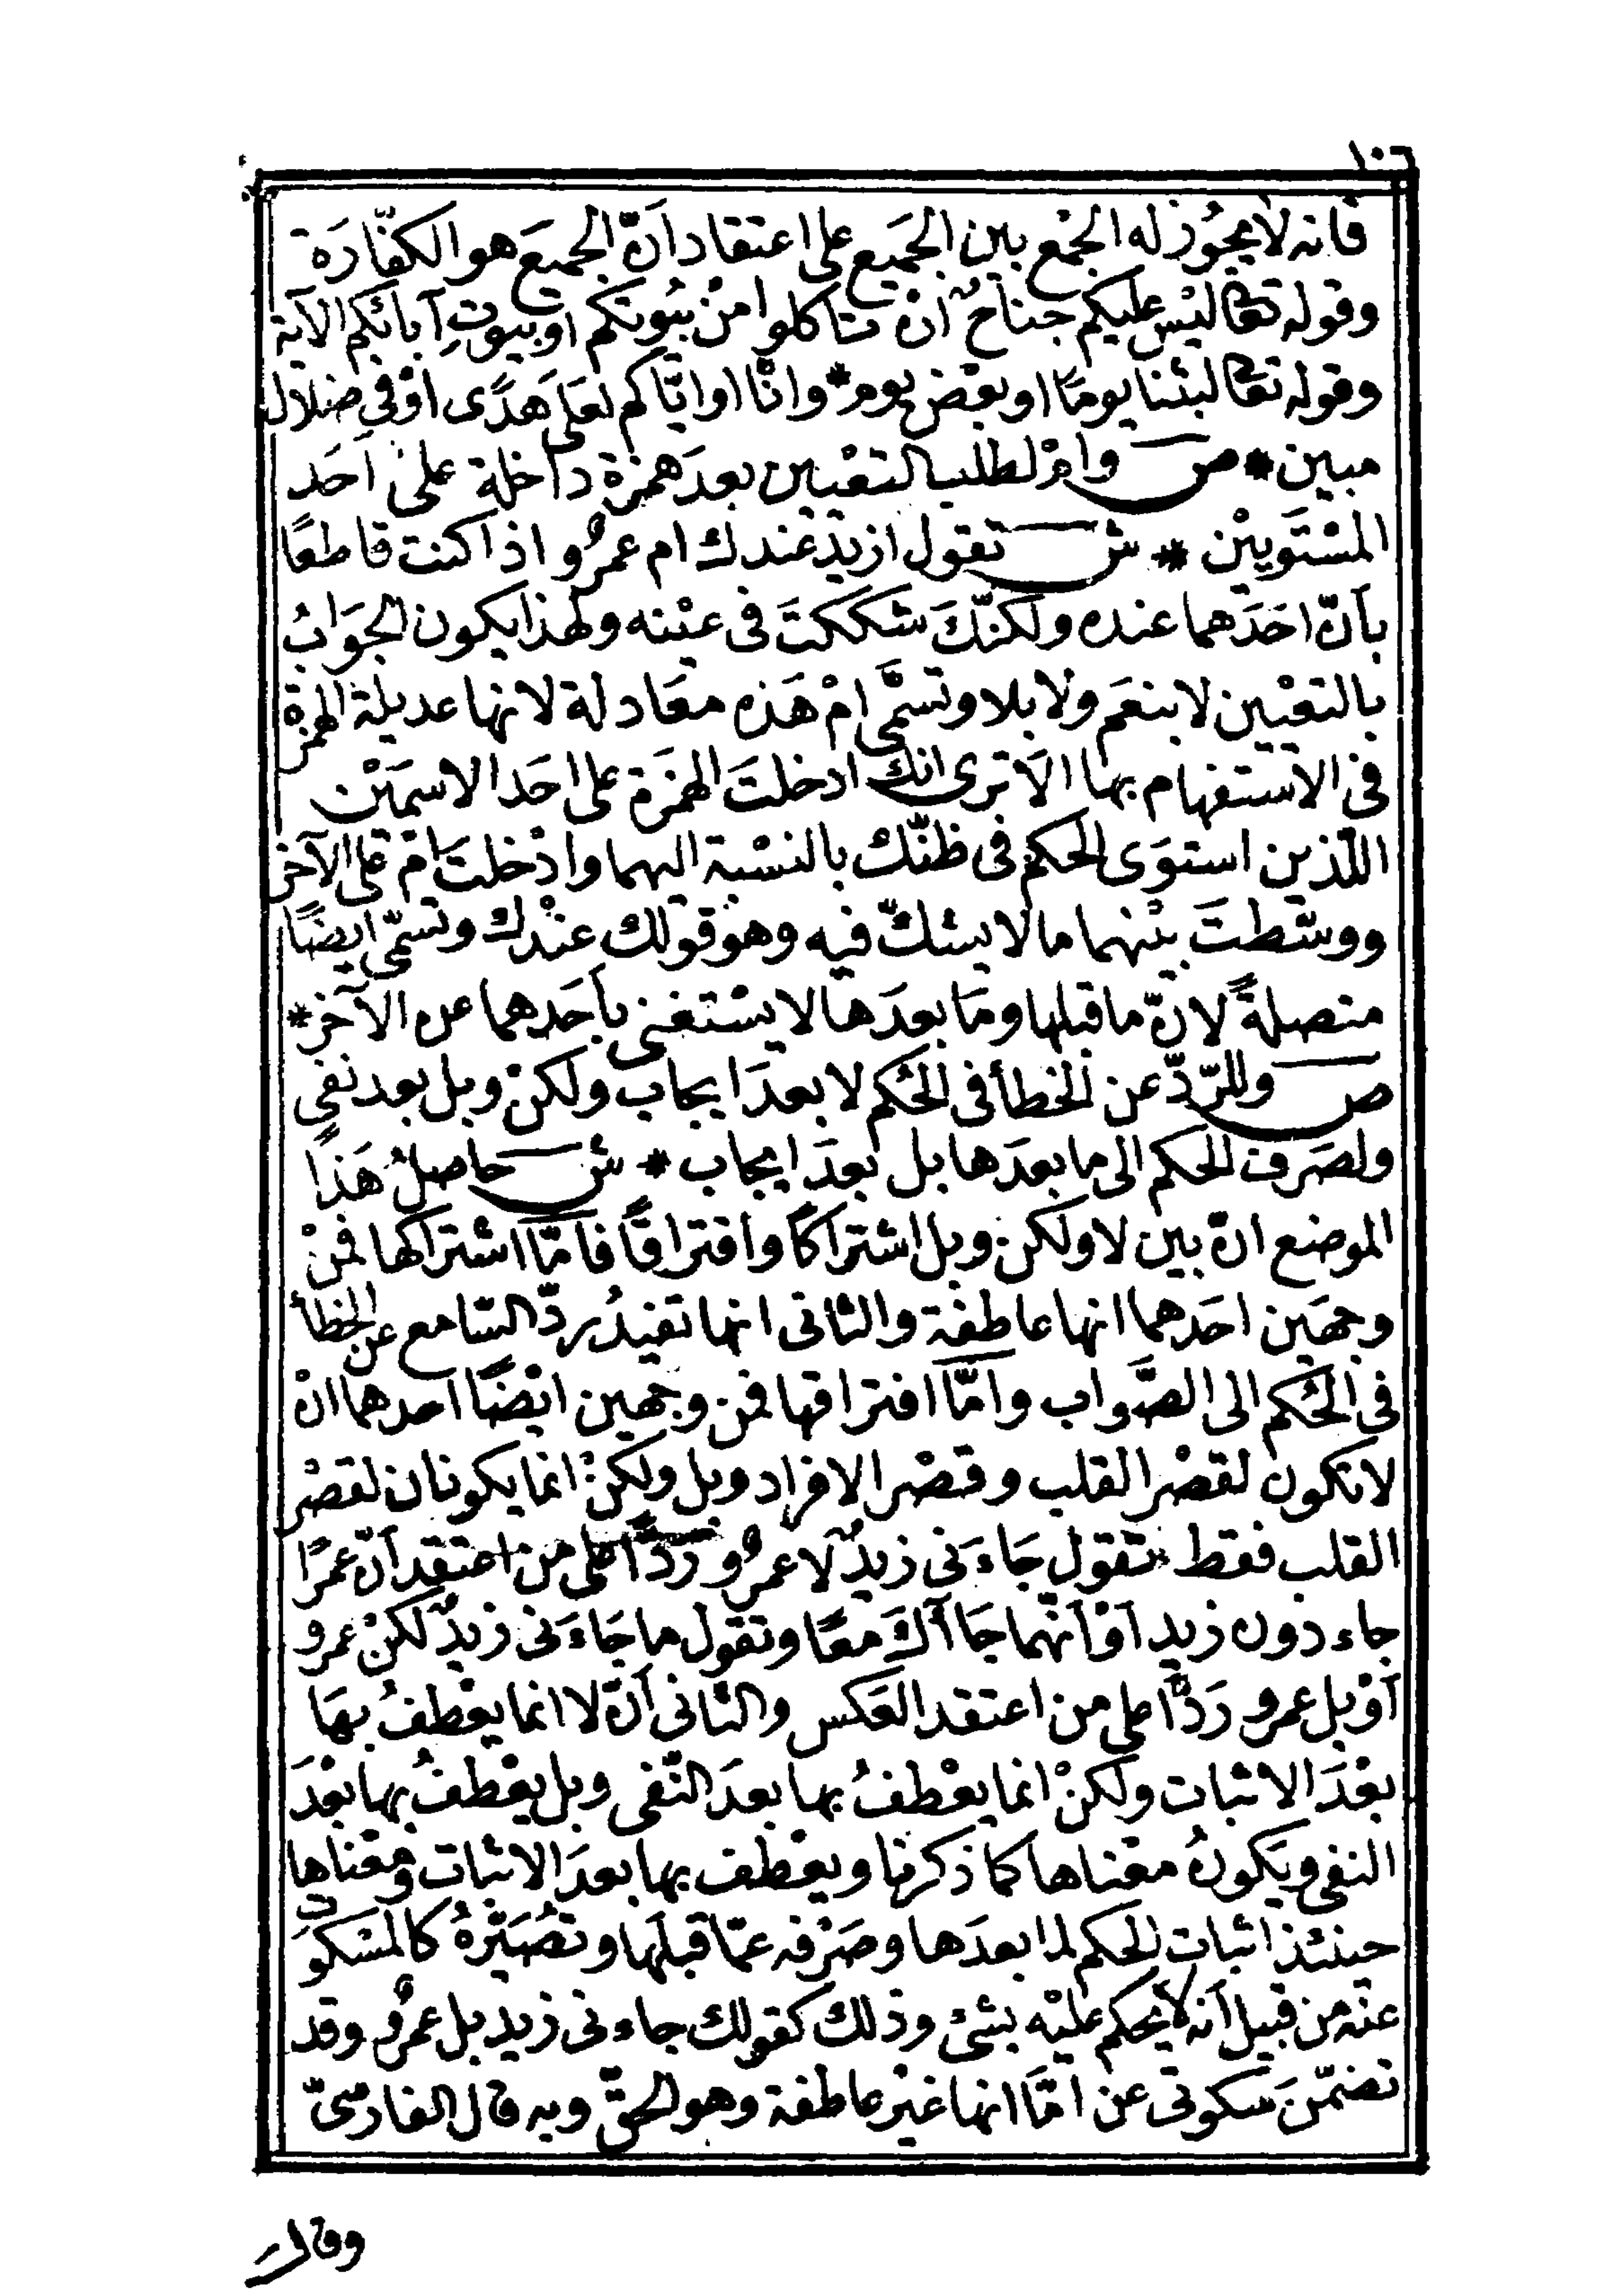 ١٠٦
فانه لا يجُوز له الجمْع بين الجَميع على اعتقاد اَنّ الجميعَ هو الكفّارَة
وقوله تعالى ليْس عليكم جناحٌ انْ تأكلوا منْ بيُوتكم او بيوتِ آبائكم الآية
وقوله تعالى لبثنا يومًا او بعْض يوم * وانّا او ايّاكم لعَلى هدًى اوْ فى ضلال
مبين * ص وامْ لطلب التعْيين بعدَ همزة داخلة على اَحَد
المسْتَويَيْن * ش تقول ازيدٌ عندك ام عمرٌو اذا كنت قاطعًا
بأنّ احَدَهما عنده ولكنّكَ شككتَ فى عيْنه ولهذا يكون الجوَابُ
بالتعْيين لا بنعَم ولا بلا وتسَمَّى امْ هَذه معَادلة لانها عديلة الهمزة
فى الاستفهام بها الاَ ترى انك ادخلتَ الهمَزة على احَد الاسمَيْن
اللّذين استوَى الحكم فى ظنّك بالنسْبة اليهما وادْخلتَ امْ على الآخر
ووسّطتَ بيْنهما ما لا يشكّ فيه وهو قولك عنْدك وتسمّى ايضًا
متصلةً لانّ ما قبلها ومَا بعدَها لا يسْتغنى بأحَدهما عن الآخر *
ص وللرّدّ عن الخطأ فى الحُكم لا بعدَ ايجاب ولكنْ وبل بعد نفى
ولصَرف الحكم الى ما بعدَها بل بعدَ ايجاب * ش حاصلُ هَذا
الموضع انّ بين لا ولكن وبل اشتراكًا وافتراقًا فامّا اشتراكها فمنْ
وجهَين احَدهما انها عاطفة والثانى انها تفيدُ ردّ السّامع عن الخطأ
فى الحُكم الى الصَّواب وامّا افتراقها فمن وجهين ايْضًا احدهما انْ
لا تكون لقصْر القلب وقصْر الافراد وبل ولكنْ انما يكونان لقصْر
القلب فقط تقول جَاءَنى زيدٌ لا عمرٌو رَدًّا على من اعتقد اَنّ عمرًا
جاء دون زيد اَوْ اَنّهما جَاآكَ معًا وتقول ما جَاءَنى زيدٌ لكنْ عمرو
اَوْ بل عمرو رَدًّا على من اعتقد العَكس والثانى اَنّ لا انما يعْطفُ بهَا
بعْدَ الاثبات ولكنْ انما يعْطفُ بها بعدَ النّفى وبل يعْطفُ بها بعْدَ
النفى ويَكونُ معْناها كما ذكرنا ويعْطف بها بعدَ الاثبات ومعْناها
حينئذ اثبات الحكم لما بعدَها وصَرْفه عمّا قبلَها وتصْيَيْرهُ كالمسْكوت
عنْه من قبيل اَنه لا يحكم عليْه بشئ وذلك كقولك جاءنى زيد بل عمرٌو وقد
تضمّنَ سَكوتى عن امّا انها غيْر عاطفة وهو الحقّ وبه قال الفارسىّ
وقال